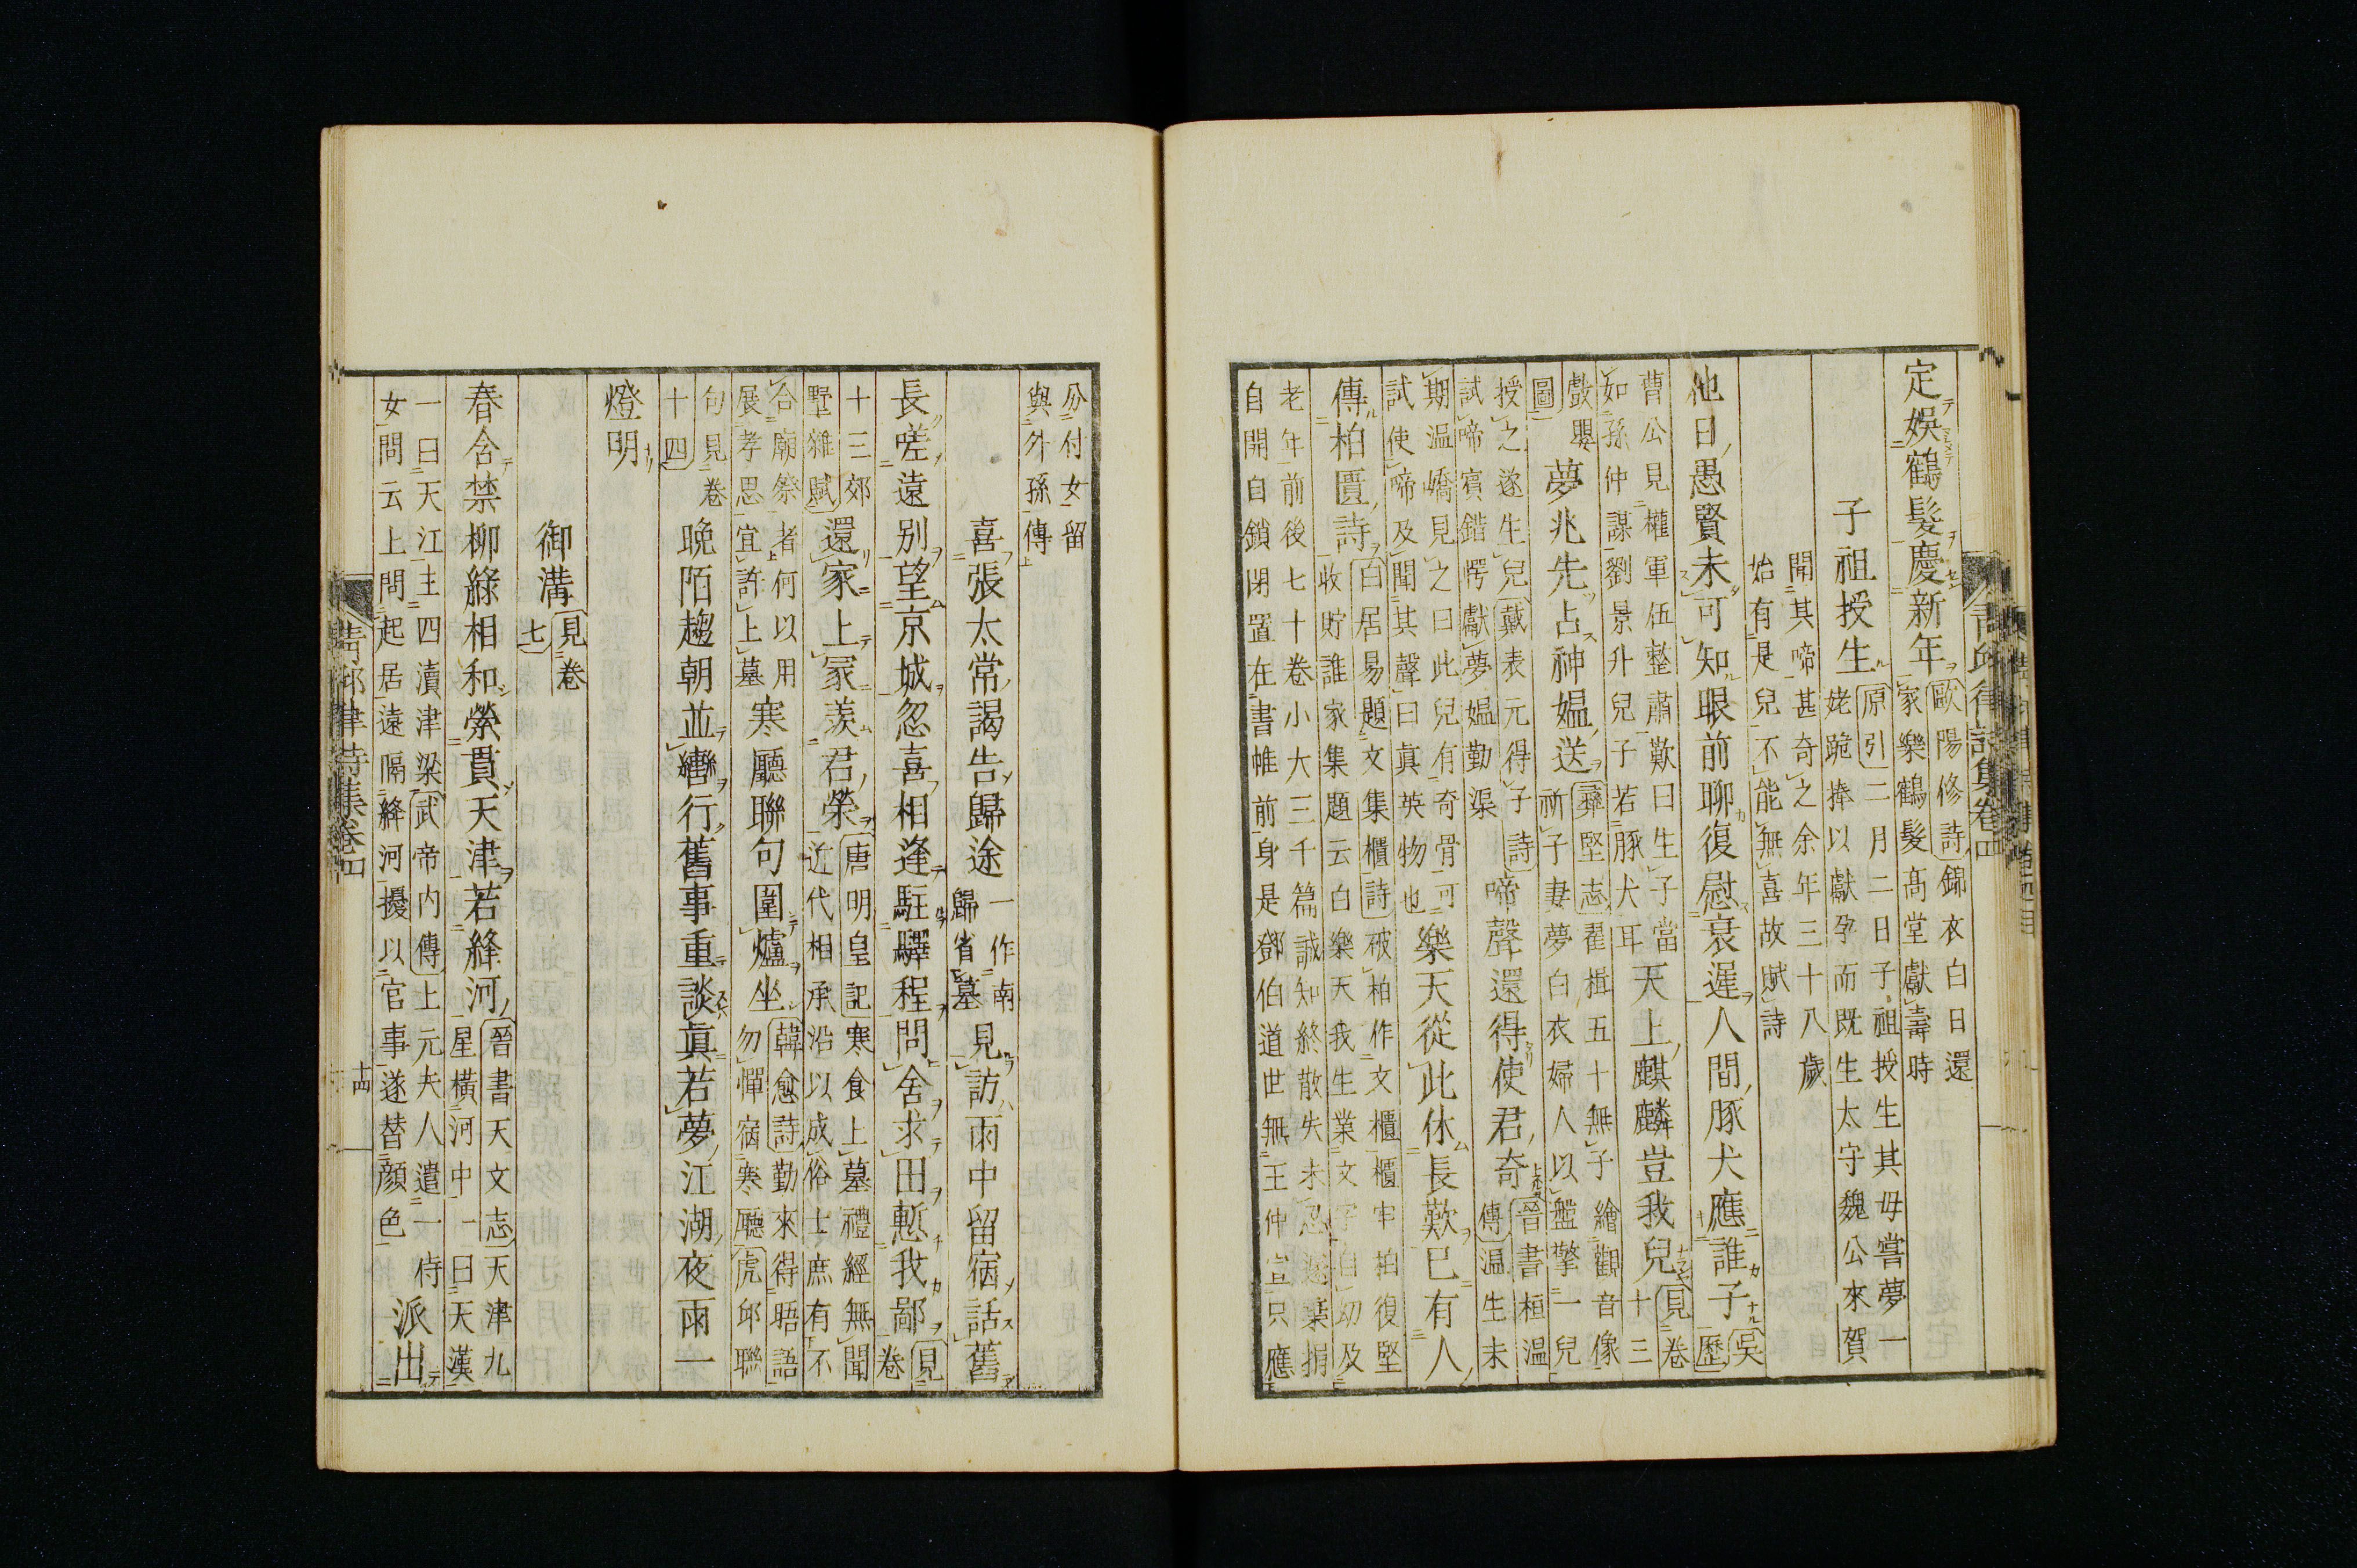 定娛鶴髮慶新年歐陽修詩錦衣白日還
家樂鶴髮高堂獻壽時
子祖授生原引二月二日子祖授生其毋嘗夢一
姥跪捧以獻孕而既生太守魏公來賀
聞其啼甚奇之余年三十八歲
始有是兒不能無喜故賦詩
他日愚賢未可知眼前聊復慰衰遲人間豚犬應誰子吳
歷
曹公見權軍伍整肅歎曰生子當
如孫仲謀劉景升兒子若豚犬耳
天上麒麟豈我兒見卷
十三
戲嬰
圖
夢兆先占神媼送彞堅志翟揖五十無子繪觀音像
祈子妻夢白衣婦人以盤擎一兒
授之遂生兒戴表元得子詩
試啼賓錯愕獻夢媼勤渠
啼聲還得使君奇晉書桓溫
傳温生未
期温嶠見之曰此兒有奇骨可
試使啼及聞其聲曰真英物也
樂天從此休長歎已有人
傳柏匱詩白居易題文集櫃詩破柏作文櫃櫃牢柏復堅
收貯誰家集題云白樂天我生業文字自幼及
老年前後七十卷小大三千篇誠知終散失未忍遽棄捐
自開自鎖閉置在書帷前身是鄧伯道世無王仲宣只應
青邱律詩集卷四
分付女留
與外孫傳
喜張太常謁告歸途一作南
歸省墓
見訪雨中留宿話舊
長嗟遠別望京城忽喜相逢駐驛程問舍求田慙我鄙見
卷
十三郊
墅雜賦
還家上冢羨君榮唐明皇記寒食上墓禮經無聞
近代相承沿以成俗士庶有不
合廟祭者何以用
展孝思宜許上墓
寒廳聯句圍爐坐韓愈詩勤來得晤語
勿憚宿寒廳虎邱聯
句見卷
十四
晚陌趨朝並轡行舊事重談眞若夢江湖夜雨一
燈明
御溝見卷
七
春含禁柳綠相和縈貫天津若絳河晉書天文志天津九
星橫河中一曰天漢
一曰天江主四瀆津梁武帝内傳上元夫人遣一侍
女問云上問起居遠隔絳河擾以官事遂替顏色
派出
青邱律詩集卷四
十四